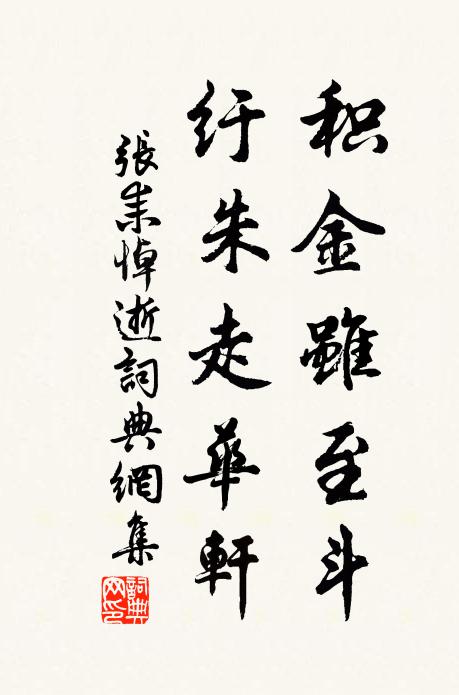 积金虽至斗
纡朱走華軒
張耒悼逝詞典網集
詞典网印